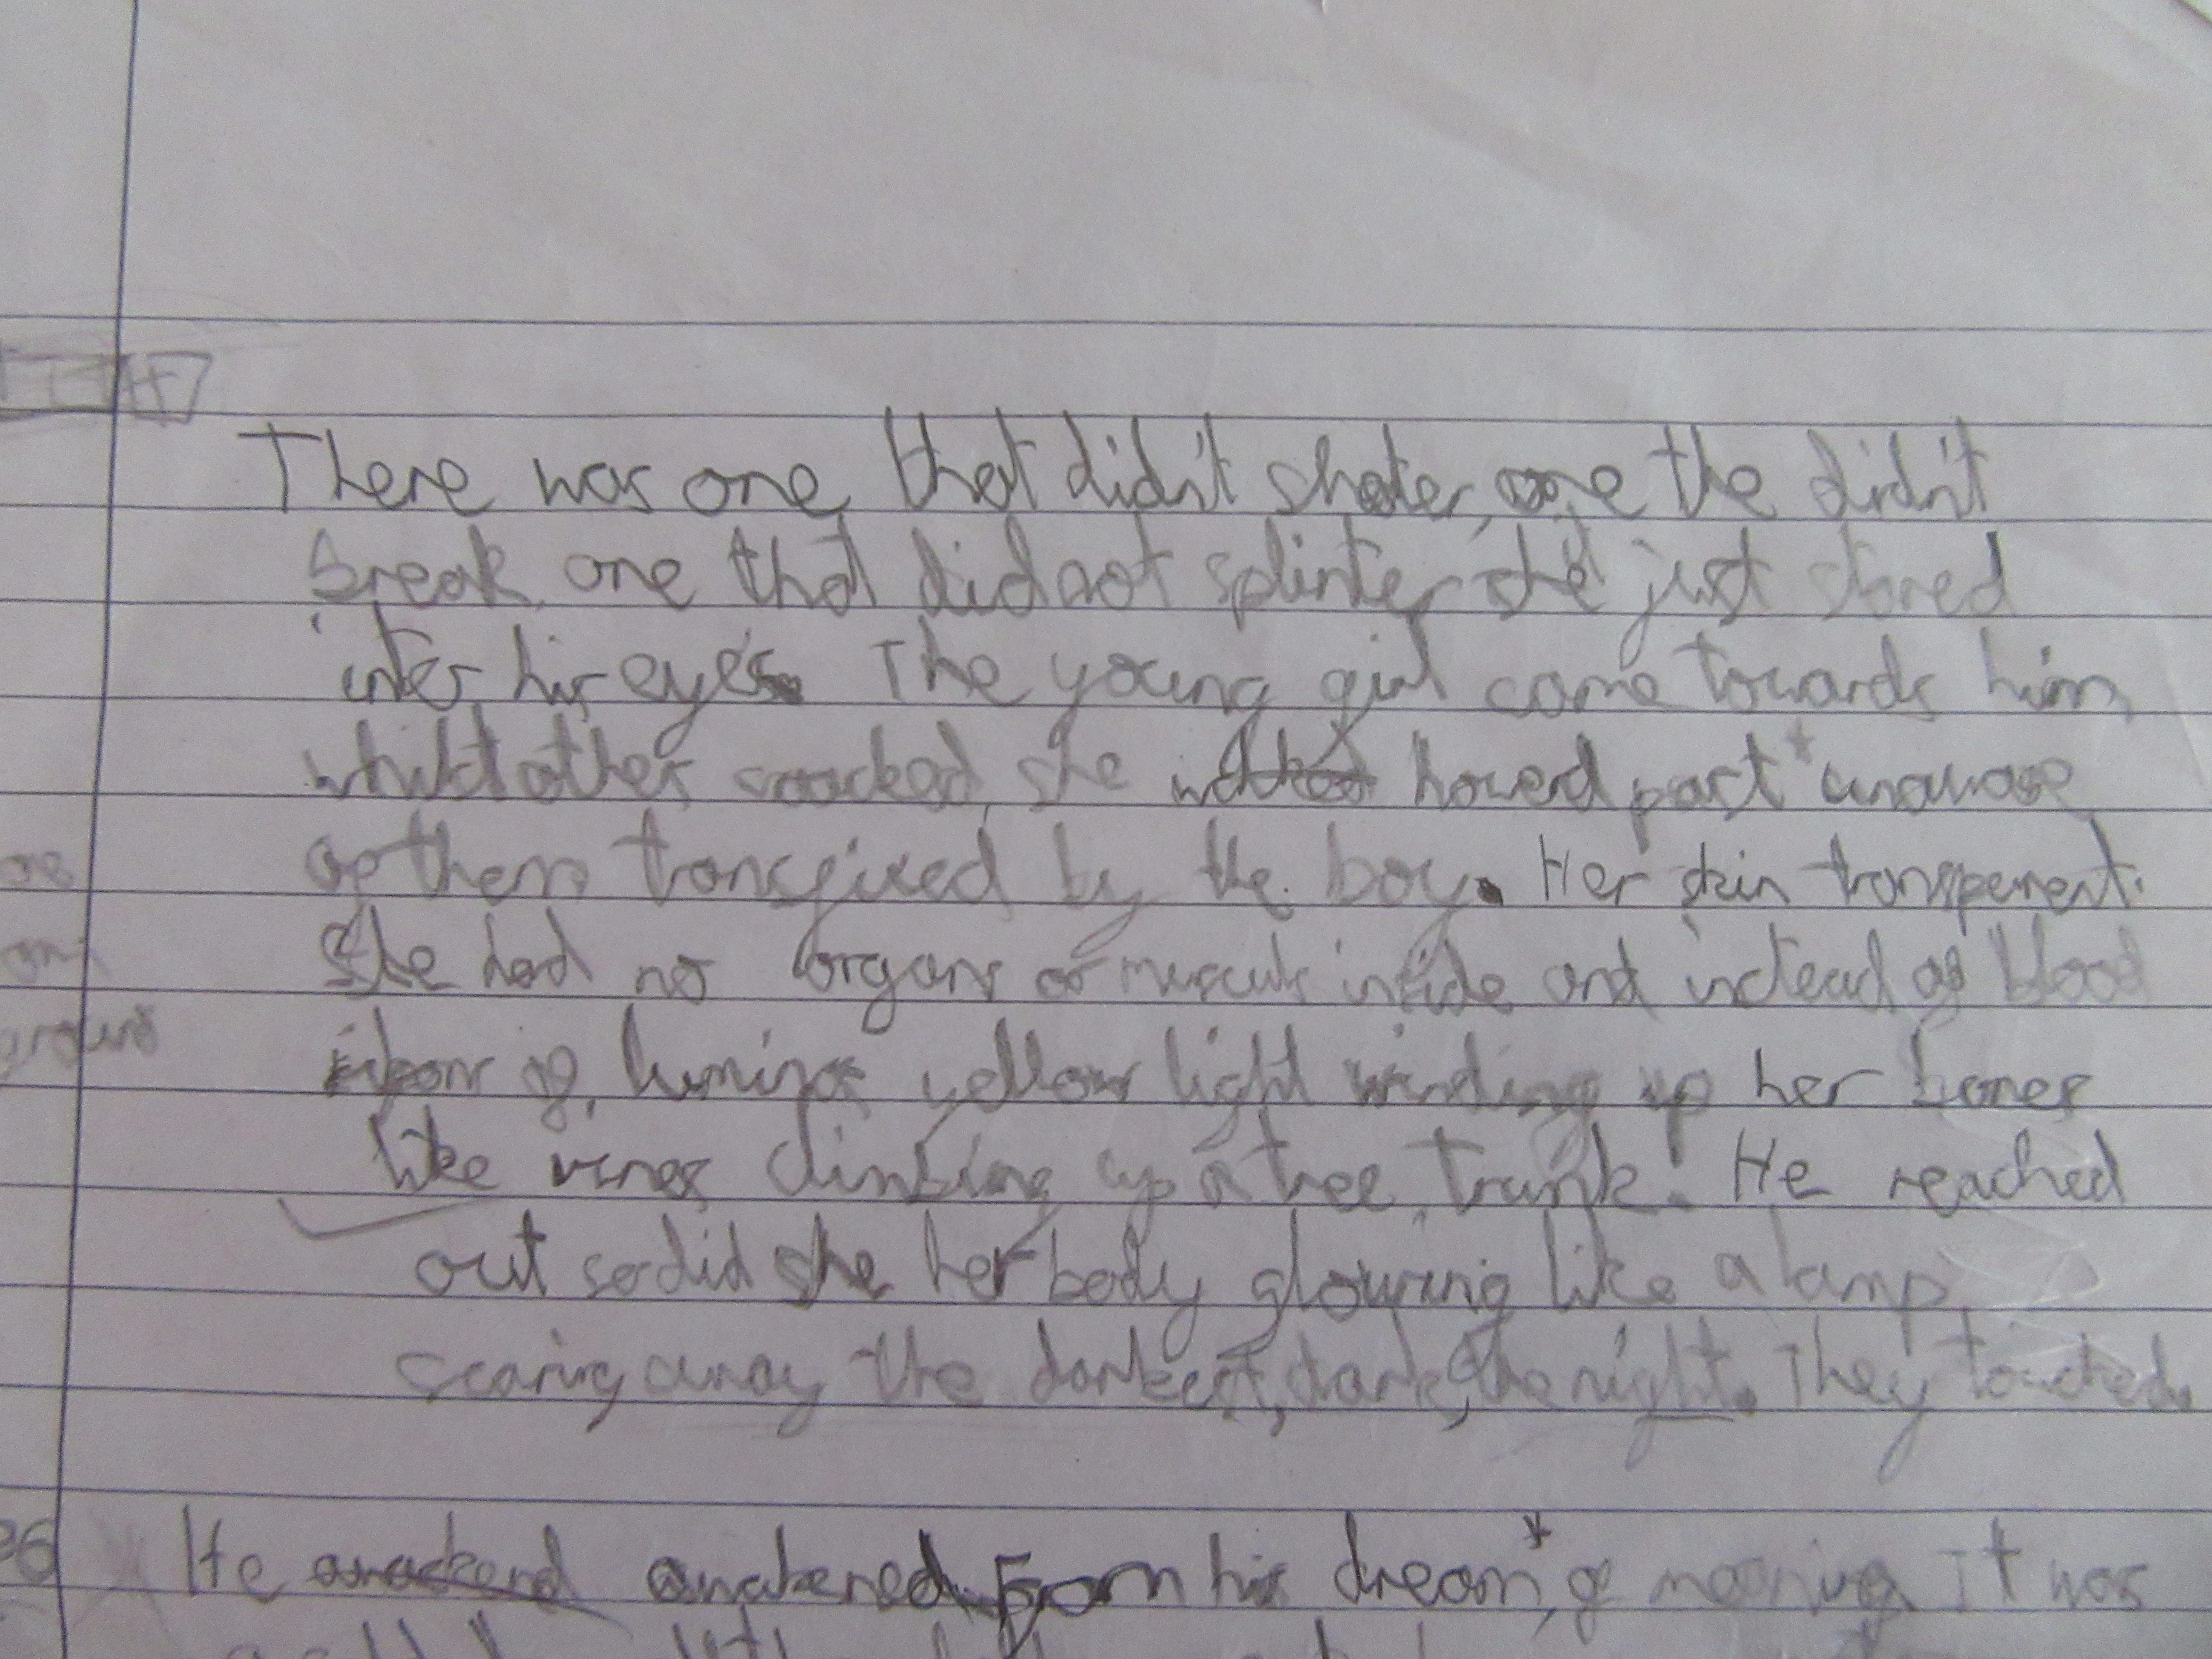 There was one that didn't shater, one the didn't
break, one that did not splinter she just stared
inter his eyes. The young girl came towards him
whilst other cracked, she walked hoverd past* unaware
of them transfixed by the boy. Her skin transperent.
She had no organs or musculs inside and instead of blood
ribons of luminos yellow light winding up her bones
like vines climbing up a tree trunk. He reached
out so did she her body glowing like a lamp
scaring away the darkest, dark, the night. They touched.
He awakened from his dream*, of meaning It was